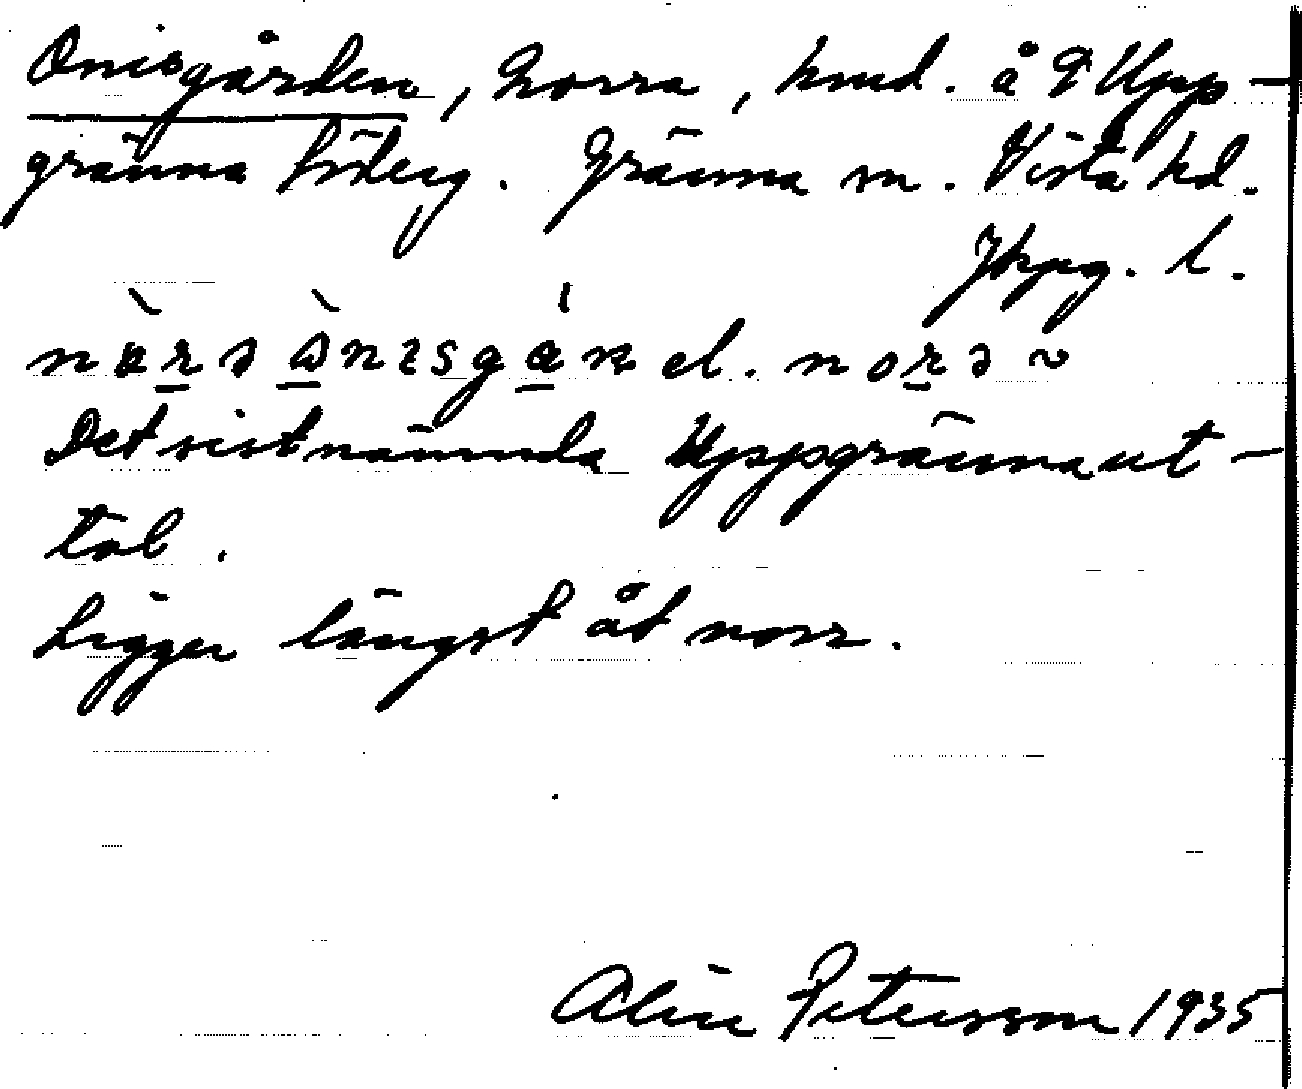 Onisgården, Norra, hmd. å D Upp-
gränna Söderg. Gränna sn. Vista hd.
Jkpg. l.
el.
Det sistnämnda Uppgrännaut-
tal.
Ligger längst åt norr.
Alice Petersson 1935